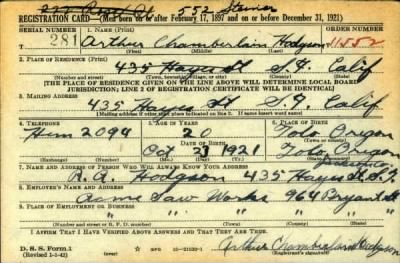 552 Steiner
REGISTRATION CARD—(Men born on or after February 17, 1897 and on or before December 31, 1921)
SERIAL NUMBER 1. NAME (Print) ORDER NUMBER
281 Arthur Chamberlain Hodgson 11552
(First) (Middle) (Last)
2. PLACE OF RESIDENCE (Print)
435 Hayes St S.F. Calif
(Number and street) (Town, township, village, or city) (County) (State)
[THE PLACE OF RESIDENCE GIVEN ON THE LINE ABOVE WILL DETERMINE LOCAL BOARD
JURISDICTION; LINE 2 OF REGISTRATION CERTIFICATE WILL BE IDENTICAL]
3. MAILING ADDRESS
435 Hayes St S.F. Calif
[Mailing address if other than place indicated on line 2. If same insert word same]
4. TELEPHONE 5. AGE IN YEARS 6. PLACE OF BIRTH
Hem 2094 20 Tolo Oregon
DATE OF BIRTH (Town or county)
Oct 21 1921 Tolo Oregon
(Exchange) (Number) (Mo.) (Day) (Yr.) (State or country)
7. NAME AND ADDRESS OF PERSON WHO WILL ALWAYS KNOW YOUR ADDRESS
R.A. Hodgson 435 Hayes St S.F.
8. EMPLOYER'S NAME AND ADDRESS
Acme Saw Works 964 Bryant St
9. PLACE OF EMPLOYMENT OR BUSINESS
(Number and street or R. F. D. number) (Town) (County) (State)
I AFFIRM THAT I HAVE VERIFIED ABOVE ANSWERS AND THAT THEY ARE TRUE.
D. S. S. Form 1
(Revised 1-1-42) Arthur Chamberlain Hodgson
(Registrant's signature)